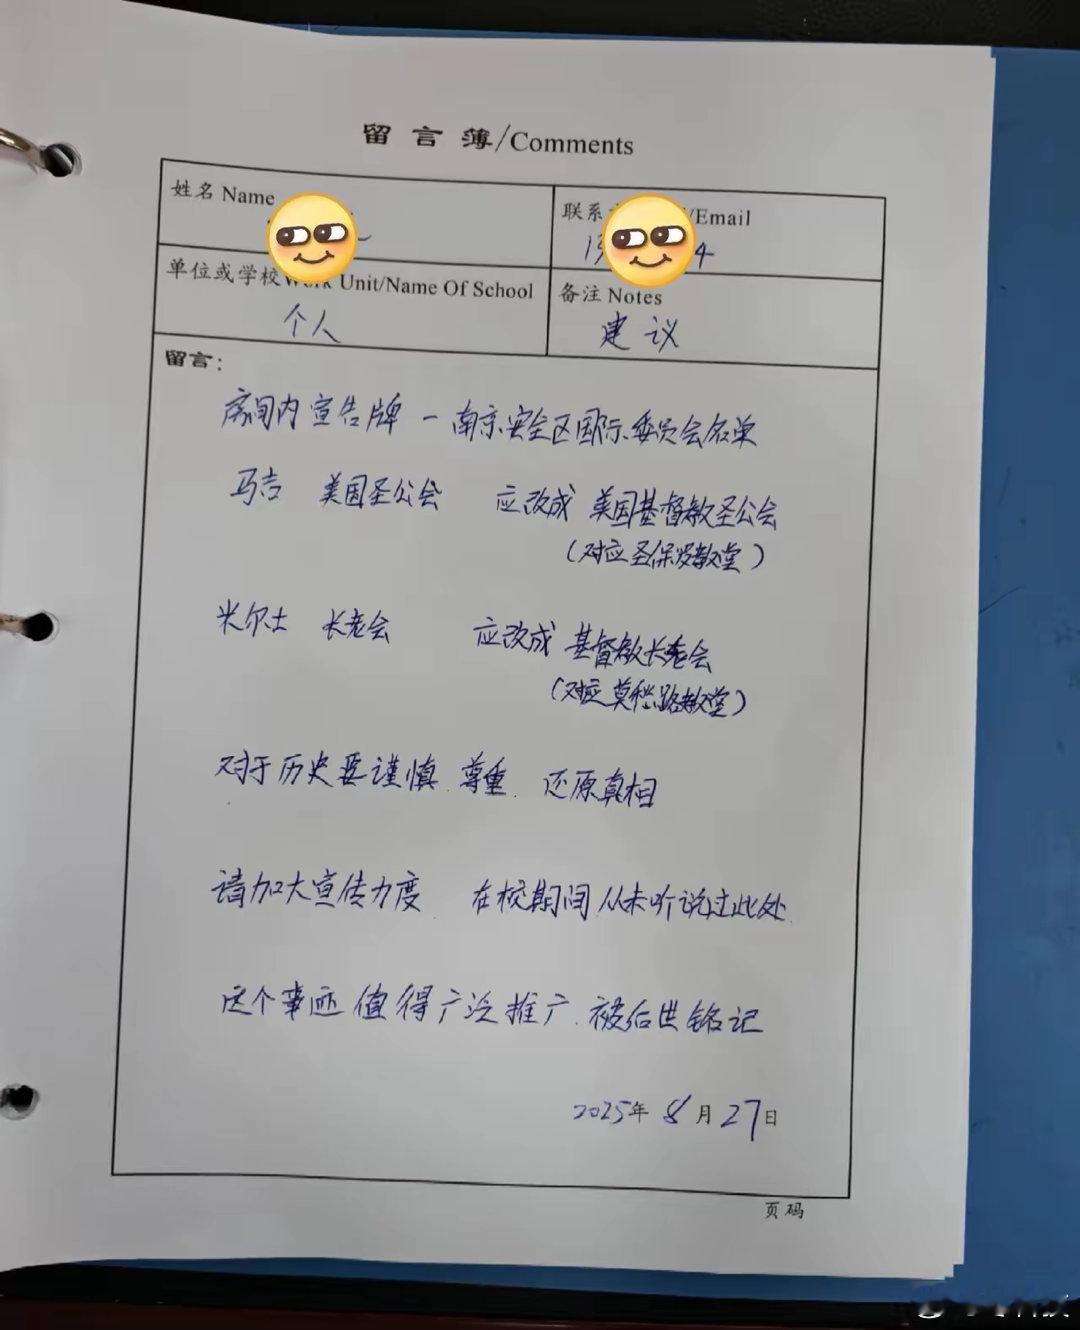 留言簿/Comments
姓名 Name
联系 /Email
13 4
单位或学校Work Unit/Name Of School
个人
备注 Notes
建议
留言：
房间内宣告牌 - 南京安全区国际委员会名单
马吉 美国圣公会 应改成 美国基督教圣公会
(对应圣保罗教堂)
米尔士 长老会 应改成 基督教长老会
(对应莫愁路教堂)
对于历史要谨慎.尊重. 还原真相
请加大宣传力度 在校期间从未听说过此处.
这个事迹值得广泛推广.被后世铭记
2025年 8月27日
页码